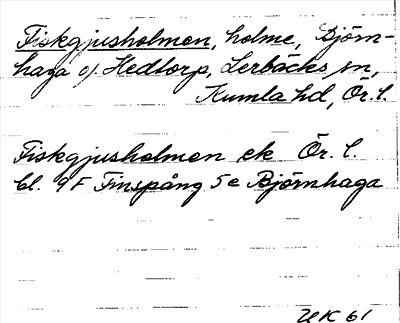 Fiskgjusholmen, holme, Björn-
haga o/ Hedtorp, Lerbäcks sn,
Kumla hd, Ör. l.
Fiskgjusholmen ek Ör. l.
bl. 9F Finspång 5e Björnhaga
UK 61